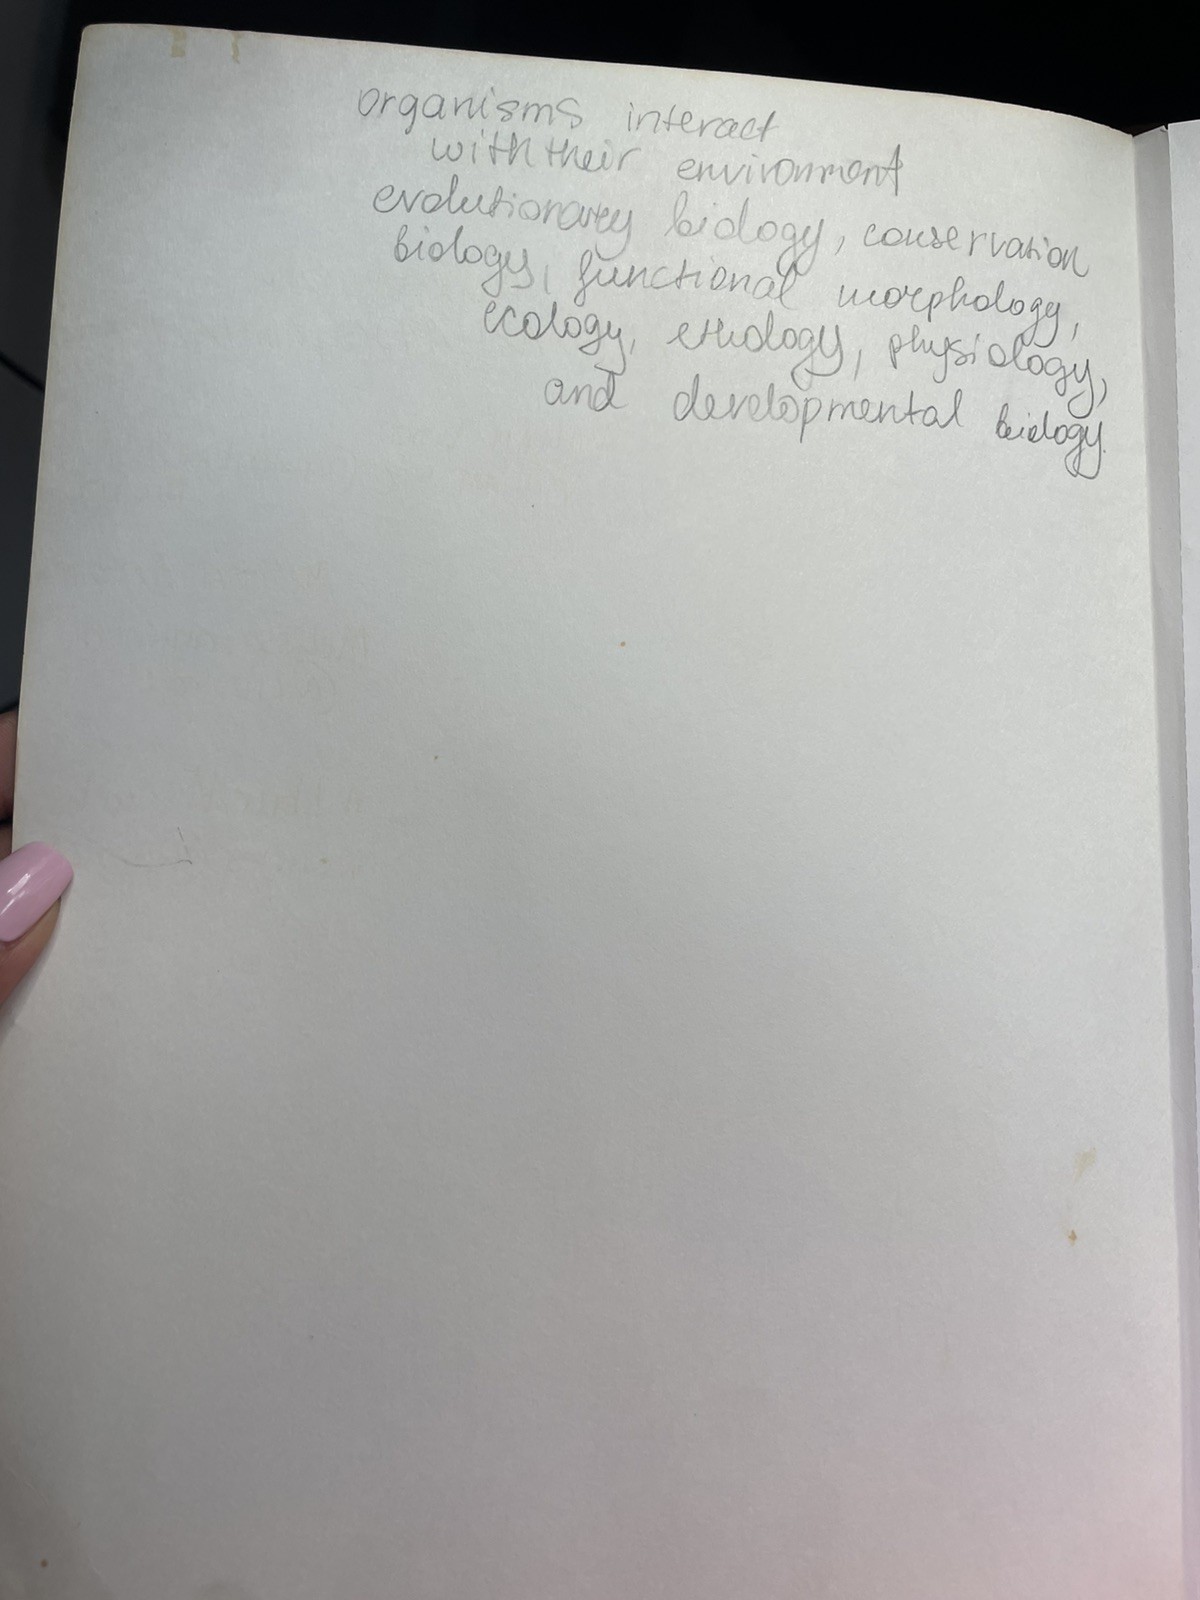 organisms interact
with their environment
evolutionary biology, conservation
biology, functional morphology,
ecology, ethology, physiology,
and developmental biology.